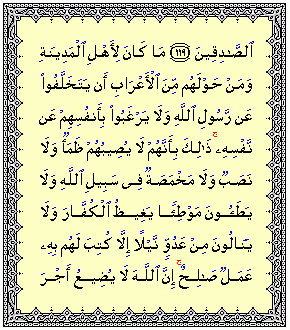 ٱلصَّـٰدِقِينَ ﴿١١٩﴾ مَا كَانَ لِأَهْلِ ٱلْمَدِينَةِ
وَمَنْ حَوْلَهُم مِّنَ ٱلْأَعْرَابِ أَن يَتَخَلَّفُوا۟
عَن رَّسُولِ ٱللَّهِ وَلَا يَرْغَبُوا۟ بِأَنفُسِهِمْ عَن
نَّفْسِهِۦ ۚ ذَٰلِكَ بِأَنَّهُمْ لَا يُصِيبُهُمْ ظَمَأٌ وَلَا
نَصَبٌ وَلَا مَخْمَصَةٌ فِى سَبِيلِ ٱللَّهِ وَلَا
يَطَـُٔونَ مَوْطِئًا يَغِيظُ ٱلْكُفَّارَ وَلَا
يَنَالُونَ مِنْ عَدُوٍّ نَّيْلًا إِلَّا كُتِبَ لَهُم بِهِۦ
عَمَلٌ صَـٰلِحٌ ۚ إِنَّ ٱللَّهَ لَا يُضِيعُ أَجْرَ